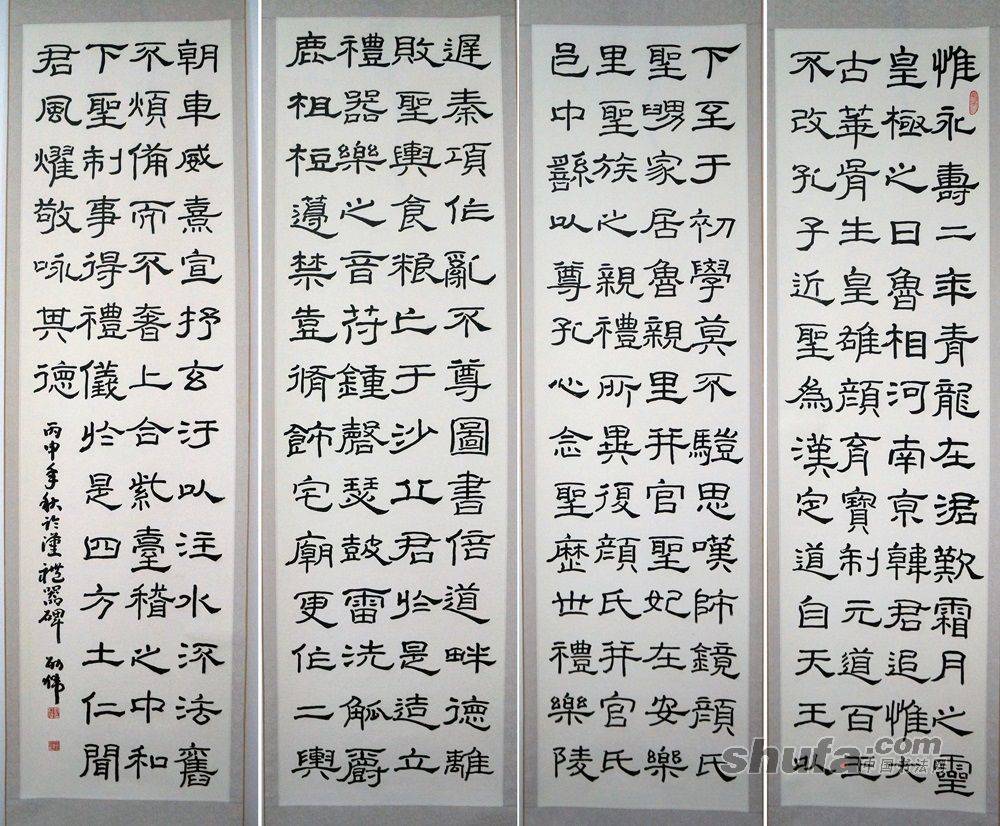 惟永壽二年青龍在涒歎霜月之靈
皇極之日魯相河南京韓君追惟大
古華胥生皇雄顏育寶制元道百王
不改孔子近聖為漢定道自天王以
下至于初學莫不驥思嘆師鏡顏氏
聖舅家居魯親里并官聖妃在安樂
里聖族之親禮所異復顏氏并官氏
邑中繇以尊孔心念聖歷世禮樂陵
遲秦項作亂不尊圖書倍道畔德離
敗聖輿食粮亡于沙丘君於是造立
禮器樂之音苻鍾磬瑟鼓雷洗觚爵
鹿柤梪籩禁壺脩飾宅廟更作二輿
朝車威熹宣抒玄汙以注水流法舊
不煩備而不奢上合紫臺稽之中和
下聖制事得禮儀於是四方土仁聞
君風燿敬咏其德
丙申年秋於漢禮器碑
shufa.com
中国书法网